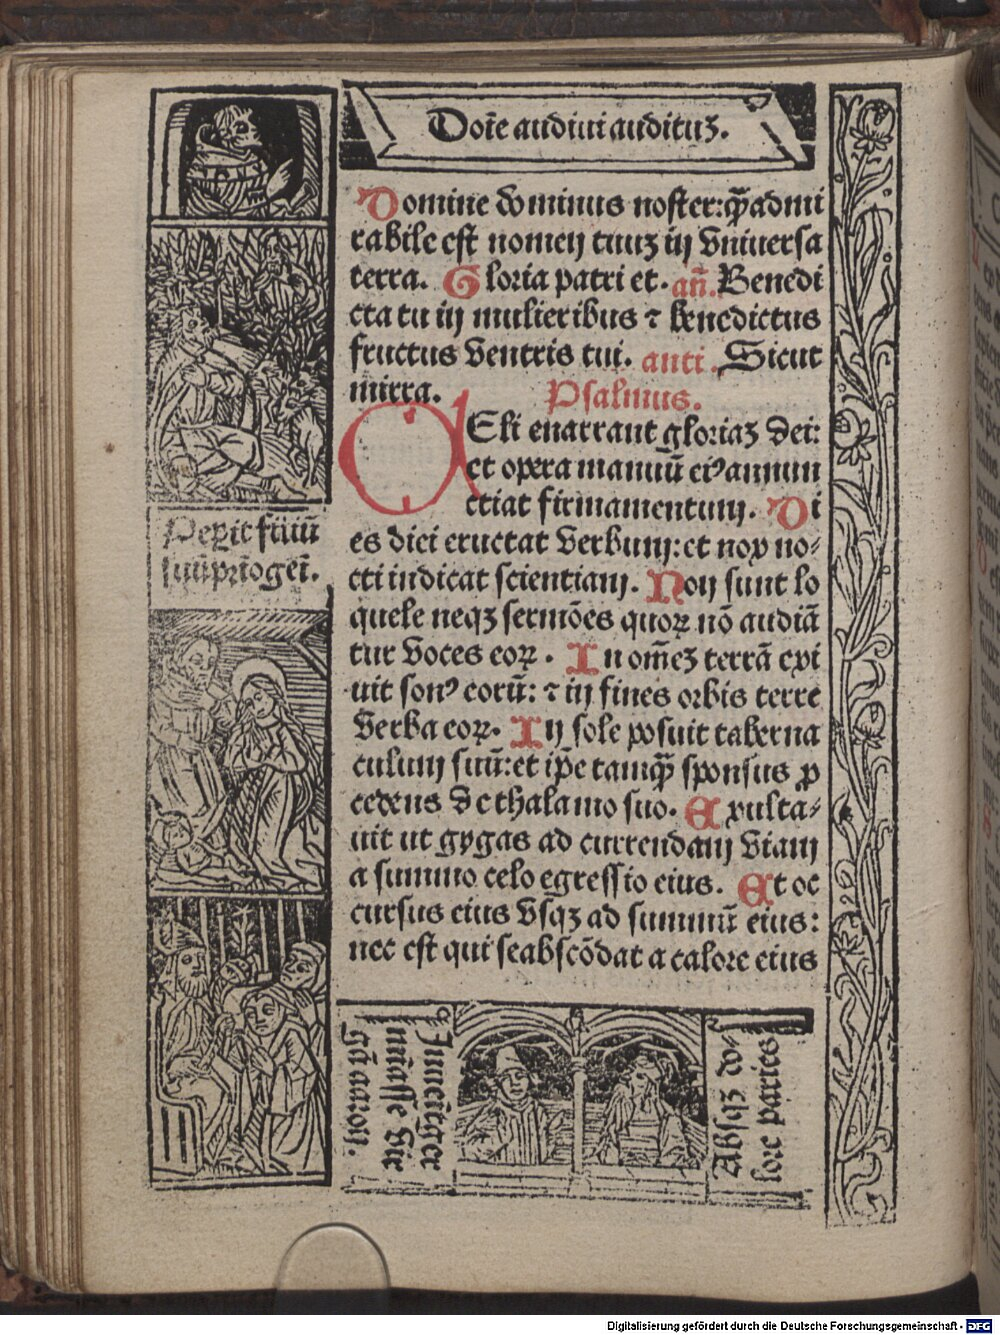 Doīe audiui audituʒ.
Domine dominus noster: q̃ȝ admi
rabile est nomen tuuʒ in vniuersa
terra. Gloria patri et. añ. Benedi
cta tu in mulieribus ⁊ benedictus
fructus ventris tui. anti. Sicut
mirra. Psalmus.
CEli enarrant gloriaʒ dei:
et opera manuū eiꝰ annun
ctiat firmamentum. Di
es diei eructat verbum: et nox no⸗
cti indicat scientiam. Non sunt lo
quele neqʒ sermōes quoꝝ nō audiā
tur voces eoꝝ. In om̄eʒ terrā exi
uit sonꝰ eorū: ⁊ in fines orbis terre
verba eoꝝ. In sole posuit taberna
culum suū: et ip̄e tamq̃ȝ sponsus ꝓ
cedens de thalamo suo. Exulta⸗
uit ut gygas ad currendam viam
a summo celo egressio eius. Et oc
cursus eius vsqʒ ad summū eius:
nec est qui se abscōdat a calore eius
Pepit filiū
suū pr̄iogeī.
Inueīt ger
minasse vir
gā aaron.
Absqʒ do⸗
lore paries
Digitalisierung gefördert durch die Deutsche Forschungsgemeinschaft - DFG